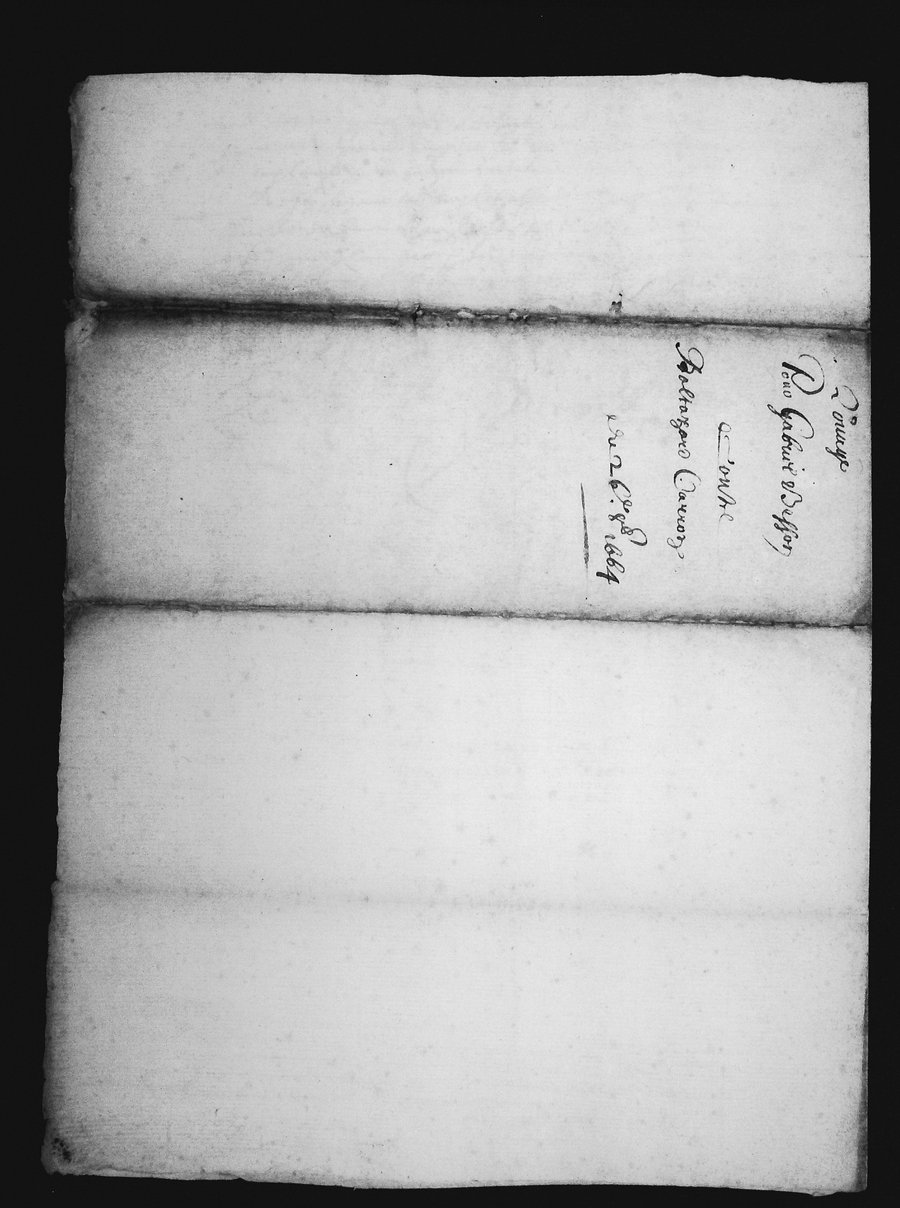 Pour Gabriel Besson
Contre
Baltazard Carroz
du 26e 8bre 1664